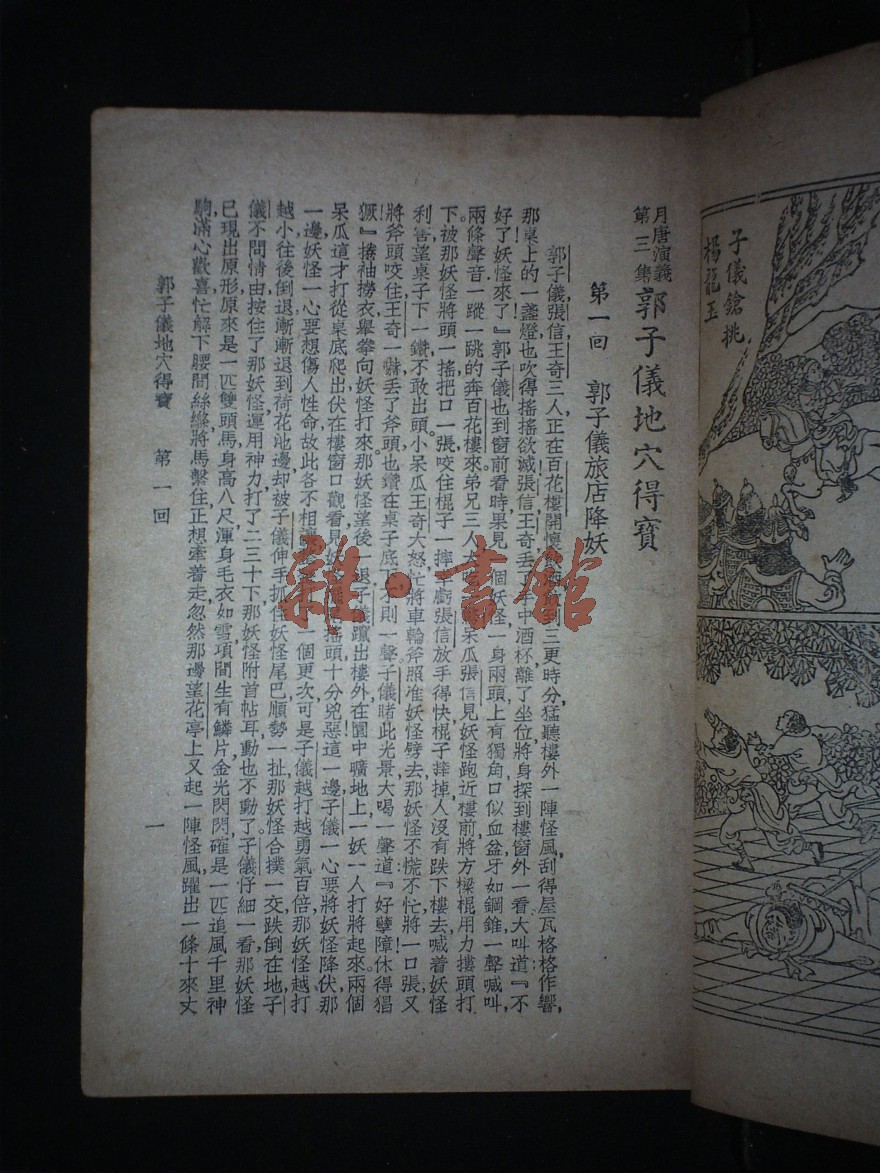 子儀鎗挑
楊龍王
月唐演義
第三集
郭子儀地穴得寶
第一回　郭子儀旅店降妖
郭子儀,張信,王奇三人,正在百花樓開懷 到三更時分,猛聽樓外一陣怪風,刮得屋瓦格格作響,
那桌上的一盞燈也吹得搖搖欲滅,張信,王奇丢 手中酒杯,離了坐位,將身探到樓窗外一看,大叫道『不
好了!妖怪來了!』郭子儀也到窗前看時,果見 個妖怪,一身兩頭,上有獨角,口似血盆,牙如鋼錐,一聲喊叫,
兩條聲音,一蹤一跳的奔百花樓來。弟兄三人大 呆瓜張信見妖怪跑近樓前,將方樑棍用力摟頭打
下,被那妖怪將頭一搖,把口一張,咬住棍子一摔, 虧張信放手得快,棍子摔掉,人沒有跌下樓去,喊着妖怪
利害,望桌子下一鑽,不敢出頭。小呆瓜王奇大怒,忙將車輪斧照准妖怪劈去,那妖怪不慌不忙,將一口張,又
將斧頭咬住,王奇一嚇,丢了斧頭,也鑽在桌子底 不則一聲,子儀睹此光景,大喝一聲道:『好孽障!休得猖
獗!』捲袖撈衣,舉拳向妖怪打來。那妖怪望後一退,子儀躥出樓外,在園中曠地上,一妖一人打將起來。兩個
呆瓜這才打從桌底爬出,伏在樓窗口觀看,見妖 搖頭,十分兇惡;這一邊子儀一心要將妖怪降伏,那
一邊妖怪一心要想傷人性命,故此各不相讓, 一個更次,可是子儀越打越勇,氣百倍,那妖怪越打
越小,往後倒退,漸漸退到荷花池邊,却被子儀伸手抓住妖怪尾巴,順勢一扯,那妖怪合撲一交,跌倒在地,子
儀不問情由,按住了那妖怪,運用神力,打了二三十下,那妖怪附首帖耳,動也不動了。子儀仔細一看,那妖怪
已現出原形,原來是一匹雙頭馬,身高八尺,渾身毛衣如雪,項間生有鱗片,金光閃閃,確是一匹追風千里神
駒,滿心歡喜,忙解下腰間絲縧,將馬繫住,正想牽着走,忽然那邊望花亭上,又起一陣怪風,躍出一條十來丈
郭子儀地穴得寶　第一回
一
雜·書館